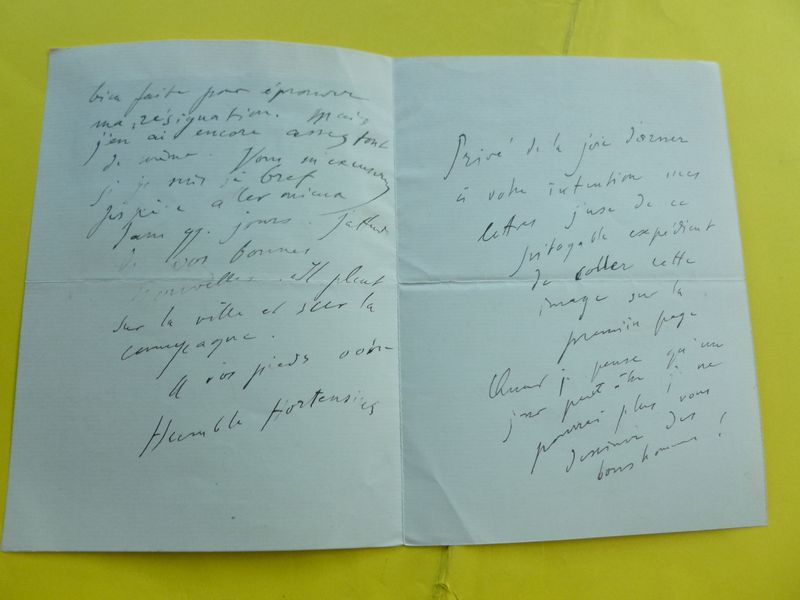 bien faite pour éprouver
ma résignation. Mais
j'en ai encore assez tout
de même. Vous m'excuserez
si je suis si bref
J'espère aller mieux
dans qq. jours. J'attends
de vos bonnes
nouvelles. Il pleut
sur la ville et sur la
campagne.
A vos pieds votre
Humble Hortensius
Privé de la joie d'orner
à votre intention mes
lettres j'use de ce
pitoyable expédient
de coller cette
image sur la
première page
Quand je pense qu'un
jour peut être je ne
pourrai plus vous
dessiner des
bonshommes !